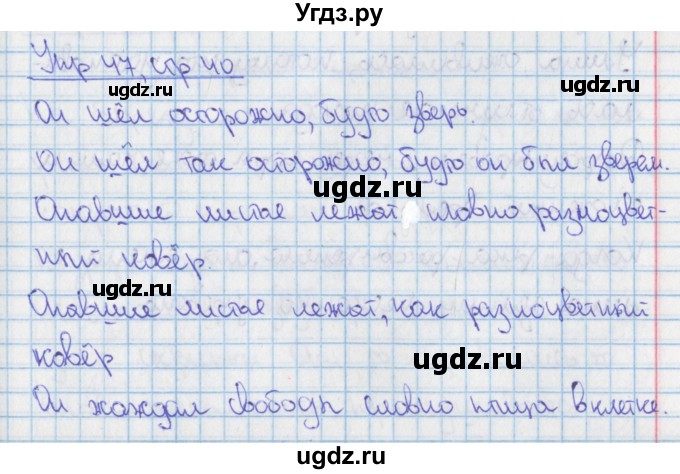 Угдз.ру
Упр 47, стр 40
Он шёл осторожно, будто зверь.
Он шёл так осторожно, будто он был зверем.
ugdz.ru
ugdz.ru
Опавшие листья лежат словно разноцвет-
ный ковёр.
ugdz.ru
Опавшие листья лежат, как разноцветный
ковёр
ugdz.ru
Он жаждал свободы словно птица в клетке.
ugdz.ru